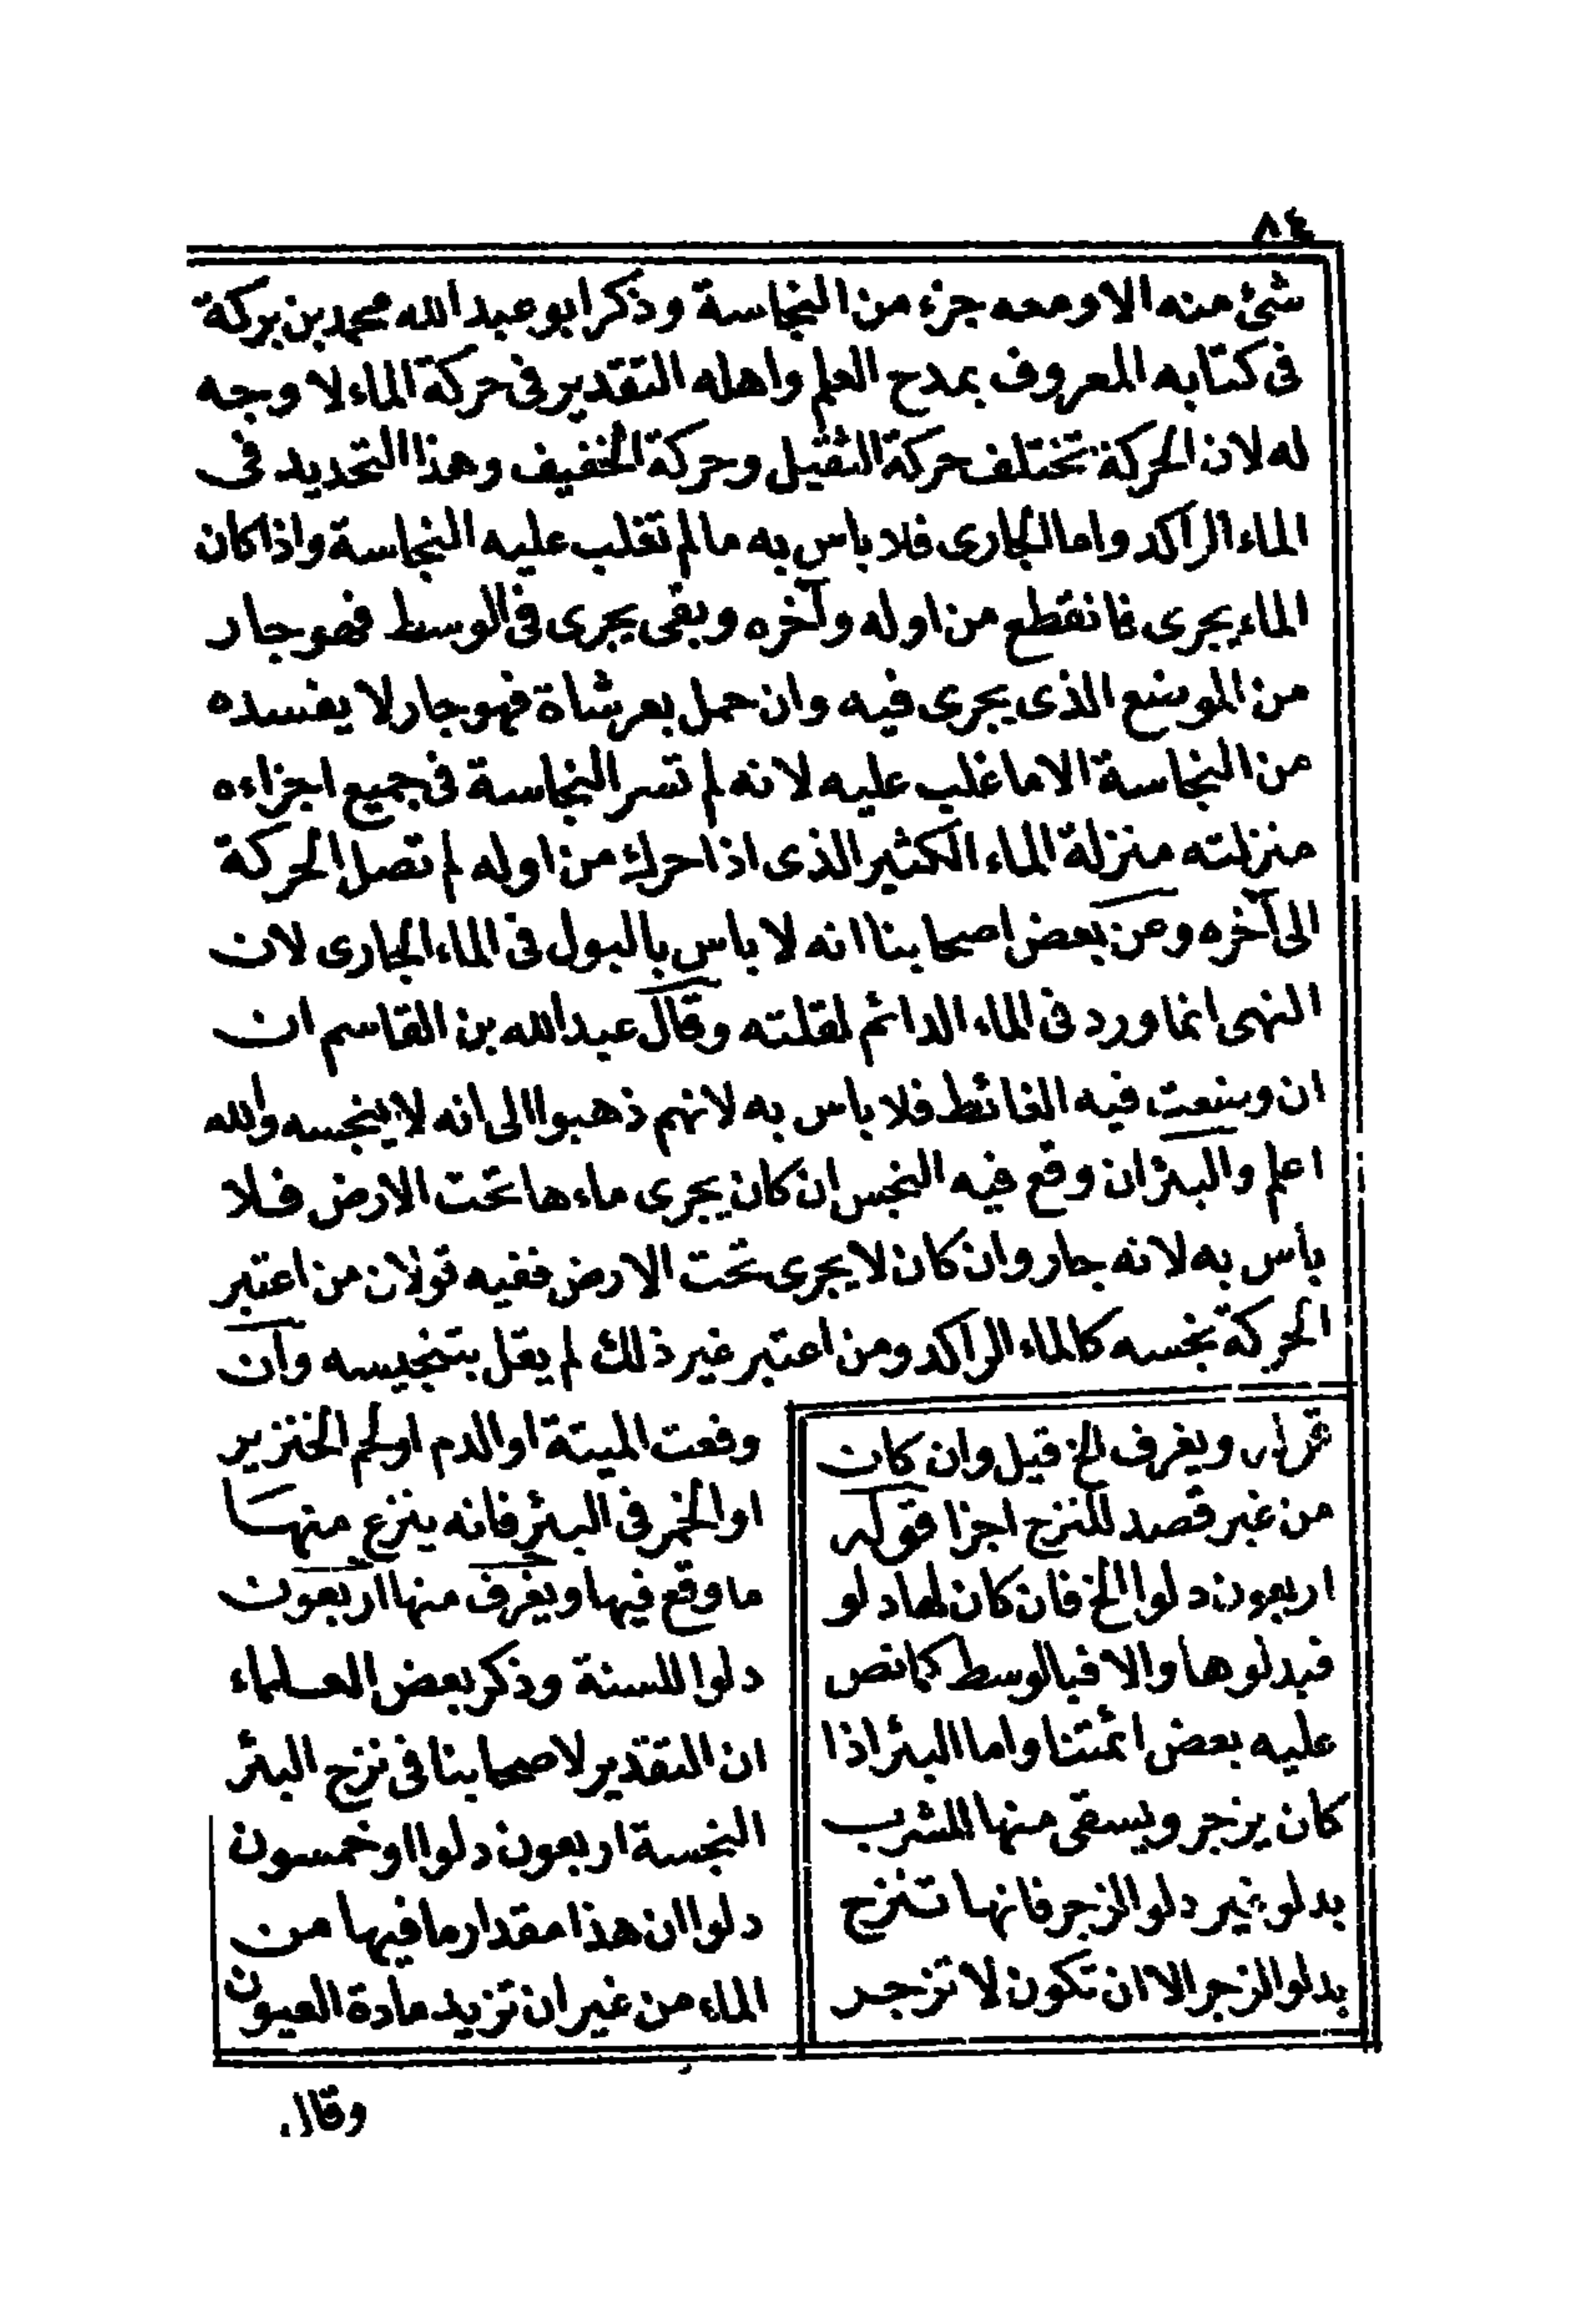 ٨٤
شئ منه الا ومعه جزء من النجاسة وذكر ابو عبد الله محمد بن بركة
فى كتابه المعروف بمدح العلم واهله التقدير فى حركة الماء لا وجه
له لان الحركة تختلف حركة الثقيل وحركة الخفيف وهذا التحديد فى
الماء الراكد واما الجارى فلا باس به ما لم تغلب عليه النجاسة واذا كان
الماء يجرى فانقطع من اوله وآخره وبقى يجرى فى الوسط فهو جار
من الموضع الذى يجرى فيه وان حمل بعر شاة فهو جار لا يفسده
من النجاسة الا ما غلب عليه لانه لم تسر النجاسة فى جميع اجزاءه
منزلته منزلة الماء الكثير الذى اذا حرك من اوله لم تصل الحركة
الى آخره وعن بعض اصحابنا انه لا باس بالبول فى الماء الجارى لان
النهى انما ورد فى الماء الدائم لقلته وقال عبد الله بن القاسم ان
ان وضعت فيه الغائط فلا باس به لانهم ذهبوا الى انه لا ينجسه والله
اعلم والبئر ان وقع فيه النجس ان كان يجرى ماءها تحت الارض فلا
بأس به لانه جار وان كان لا يجرى تحت الارض ففيه قولان من اعتبر
الحركة نجسه كالماء الراكد ومن اعتبر غير ذلك لم يقل بتنجيسه وان
وقعت الميتة او الدم او لحم الخنزير
او الخمر فى البئر فانه ينزع منها
ما وقع فيها ويغرف منها اربعون
دلوا للسنة وذكر بعض العلماء
ان التقدير لاصحابنا فى نزح البئر
النجسة اربعون دلوا او خمسون
دلوا ان هذا مقدار ما فيها من
الماء من غير ان تزيد مادة العيون
ويغرف الخ قيل وان كان
من غير قصد للنزح اجزا قوله
اربعون دلوا الخ فان كان لها دلو
فبدلوها والا فبالوسط كما نص
عليه بعض ائمتنا واما البئر اذا
كان يزجر ويسقى منها للشرب
بدلو غير دلو الزجر فانها تنزح
بدلو الزجر الا ان تكون لا تزجر
وقال